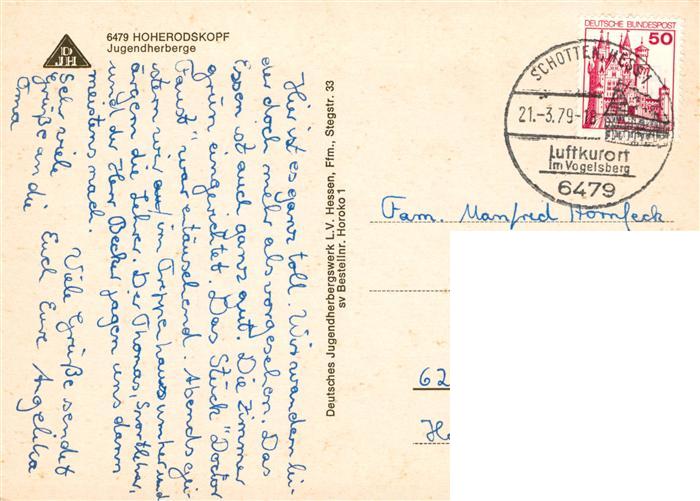 6479 HOHERODSKOPF
Jugendherberge
DJH
Hier ist es ganz toll. Wir wandern lei-
der doch mehr als vorgesehen. Das
Essen ist auch ganz gut. Die Zimmer
grün eingerichtet. Das Stück "Doctor
Faust" war enttäuschend. Abends gei-
stern wir im Treppenhaus umher und
ärgern die Lehrer. Der Thomas, Sportlehrer,
und der Herr Becker jagen uns dann
meistens nach.
Viele Grüße sendet
Euch Eure Angelika
Sehr viele
Grüße an die
Oma
Deutsches Jugendherbergswerk L.V. Hessen, Ffm., Stegstr. 33
sv Bestellnr. Horoko 1
DEUTSCHE BUNDESPOST
50
SCHOTTEN, HESS 1
21.-3.79-18
Luftkurort
im Vogelsberg
6479
Fam. Manfred Hornfeck
62
He